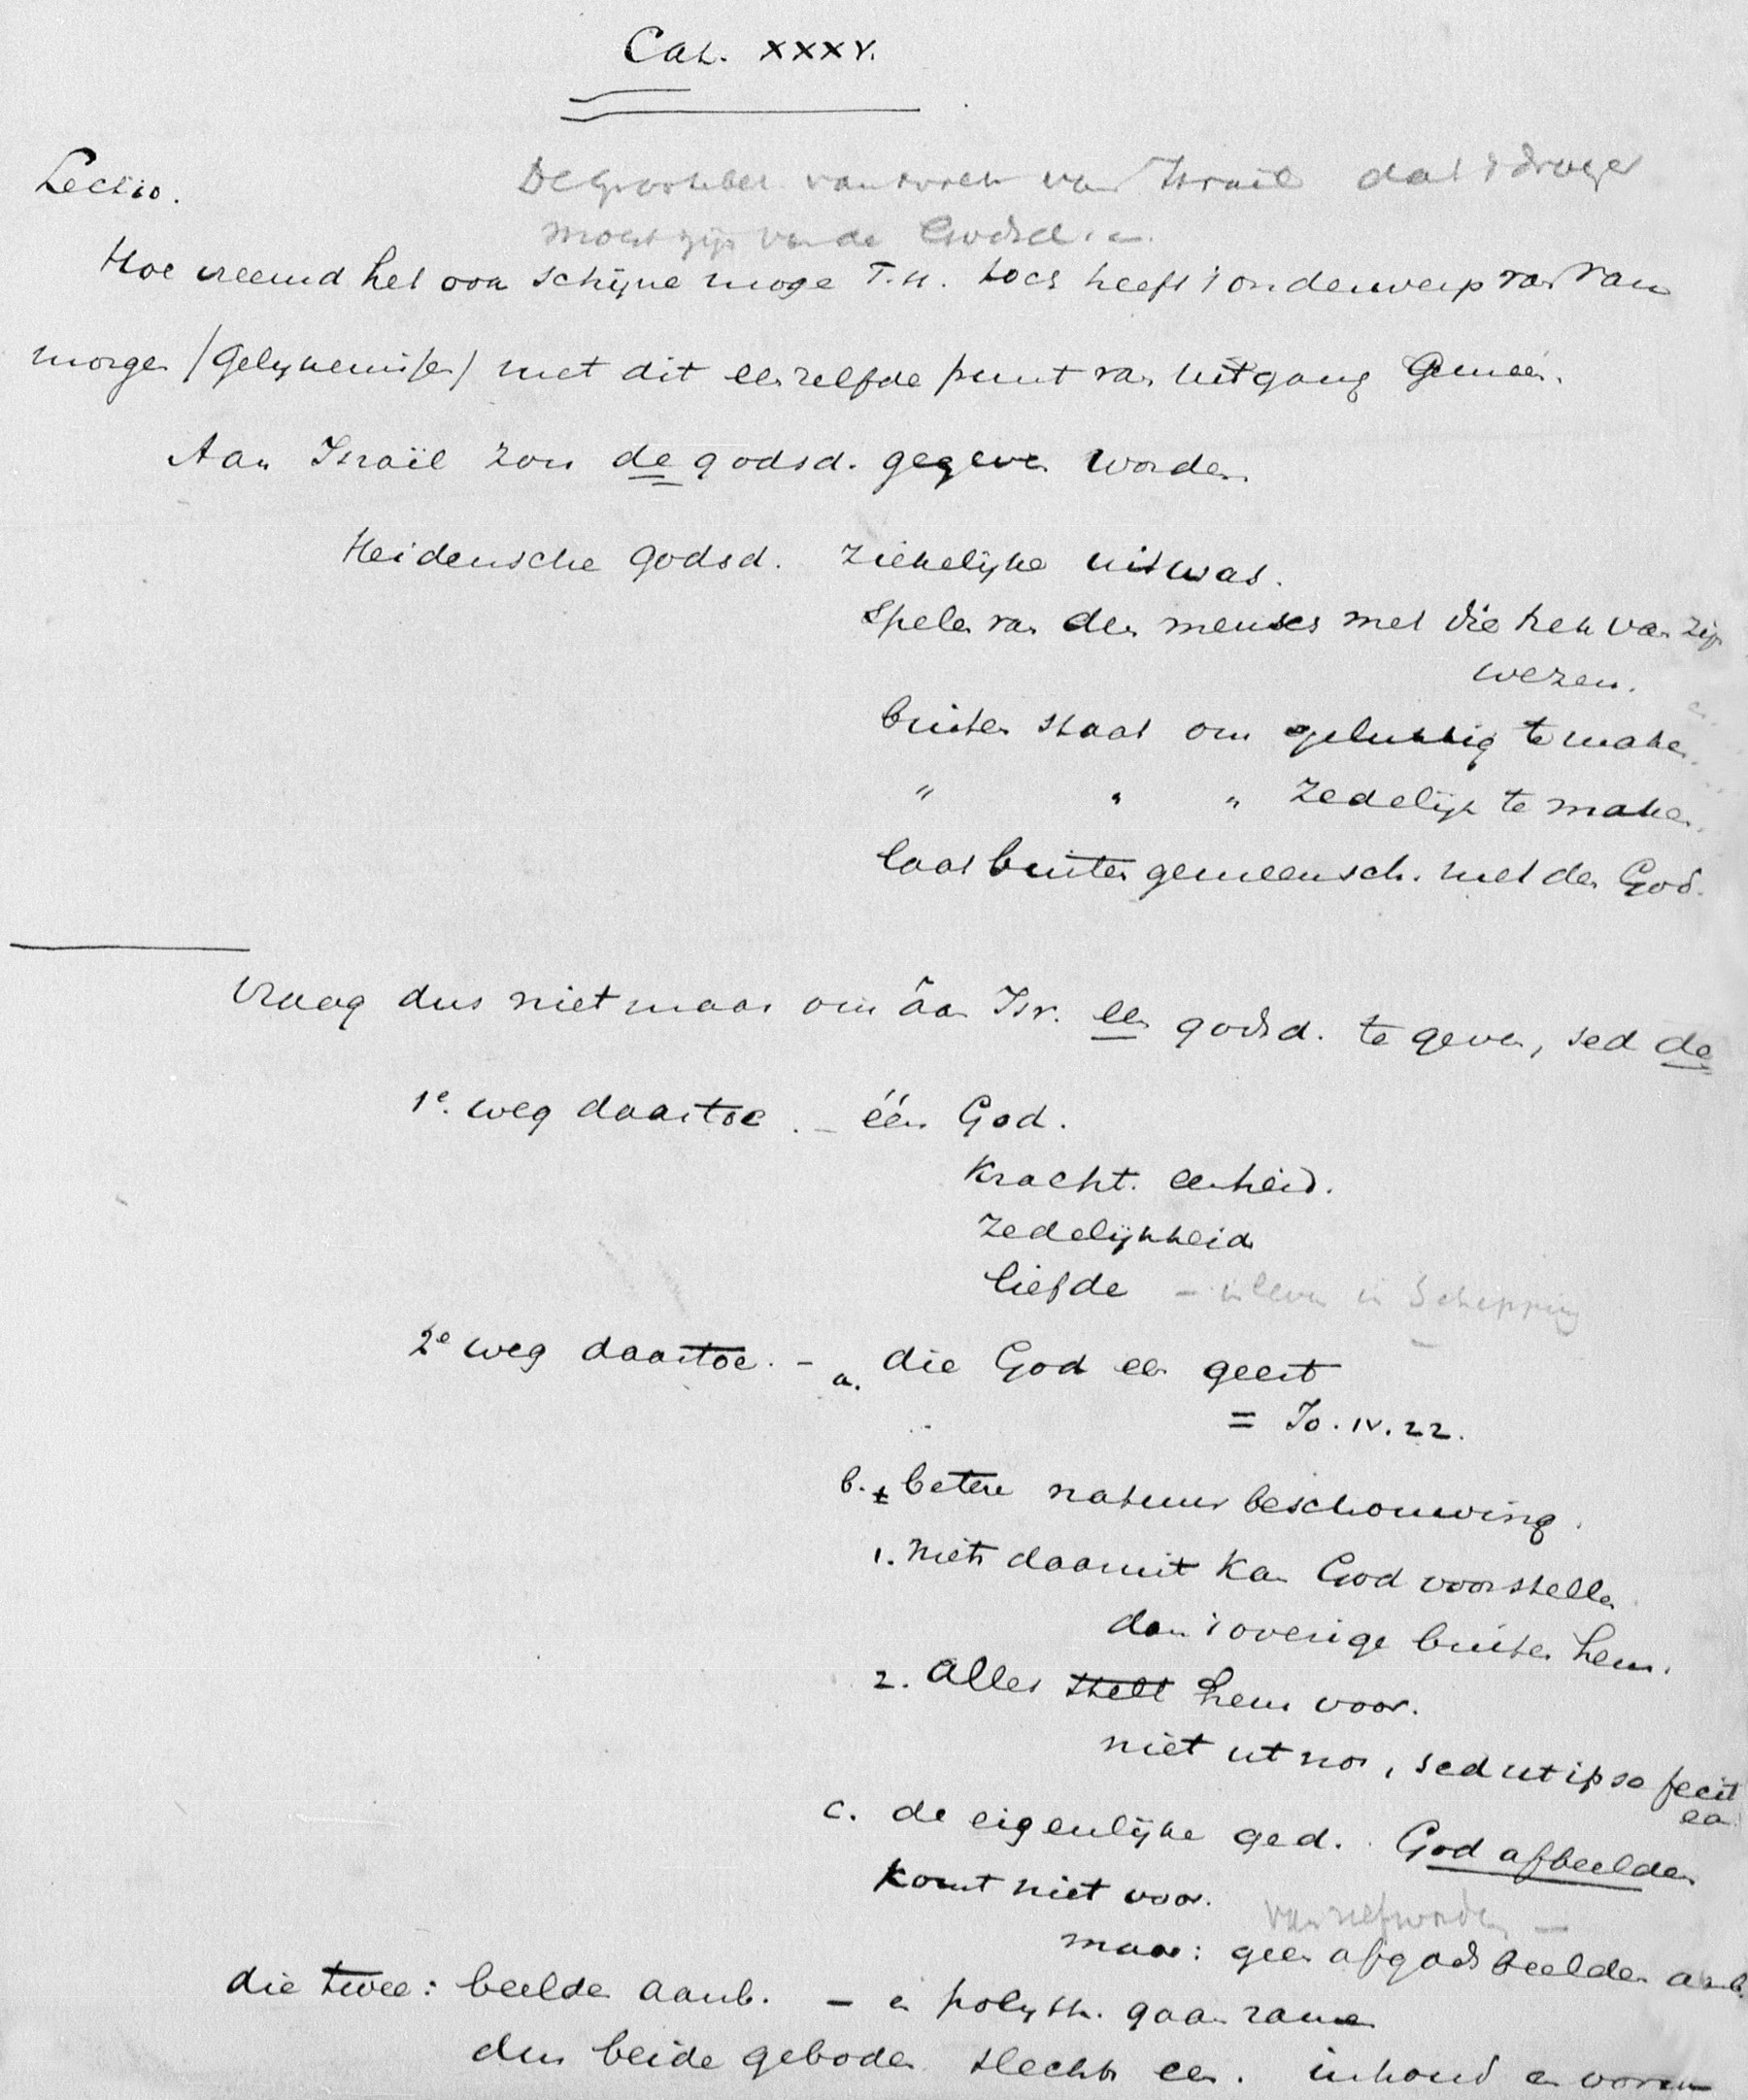 Cat. XXXV.
Lectio.
van Israël dat 't drager
moest zijn van de Godsd.
Hoe vreemd het ook schijne moge T.H. toch heeft 't onderwerp van van
morge (gelijkenisse) met dit een zelfde punt van uitgang gemeen.
Aan Israël zou de godsd. gegeven worden
Heidensche godsd. ziekelijke uitwas.
Spelen van den mensch met die trek van zijn
wezen.
buiten staat om gelukkig te maken.
" " " zedelijk te maken.
laat buiten gemeensch. met den God.
Vraag dus niet maar om aan Isr. een godsd. te geven, sed de
1e. weg daartoe. – één God.
Kracht. eenheid.
Zedelijkheid
liefde – in Schepping
2e weg daartoe. – a. die God een geest
= Jo. IV. 22.
b. betere natuurbeschouwing.
1. niets daaruit kan God voorstellen
dan 't overige buiten hem.
2. Alles stelt hem voor.
niet ut nos, sed ut ipse fecit
ea.
c. de eigenlijke ged. God afbeelden
komt niet voor.
maar: geen afgodsbeelden aanb.
die twee: beelden aanb. – en polyth. gaan samen
dus beide geboden slechts een. inhoud en vorm